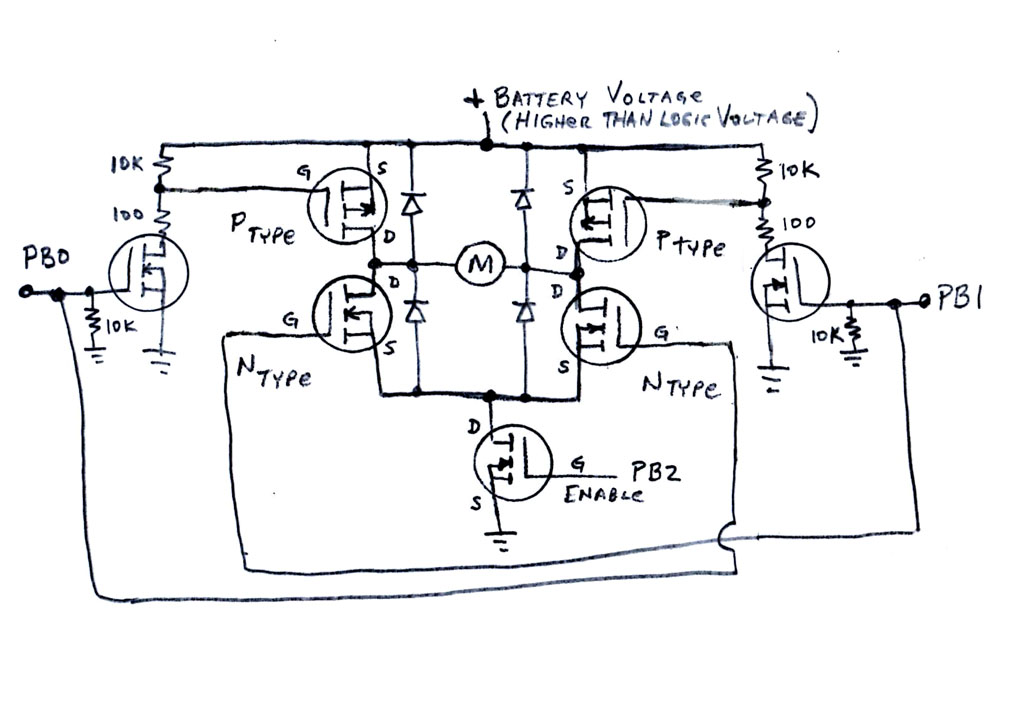 + BATTERY VOLTAGE
(HIGHER THAN LOGIC VOLTAGE)
10K
G
S
S
10K
100
P TYPE
D
D
P TYPE
100
PB0
M
D
D
PB1
10K
G
G
10K
N TYPE
S
S
N TYPE
D
G
PB2
ENABLE
S